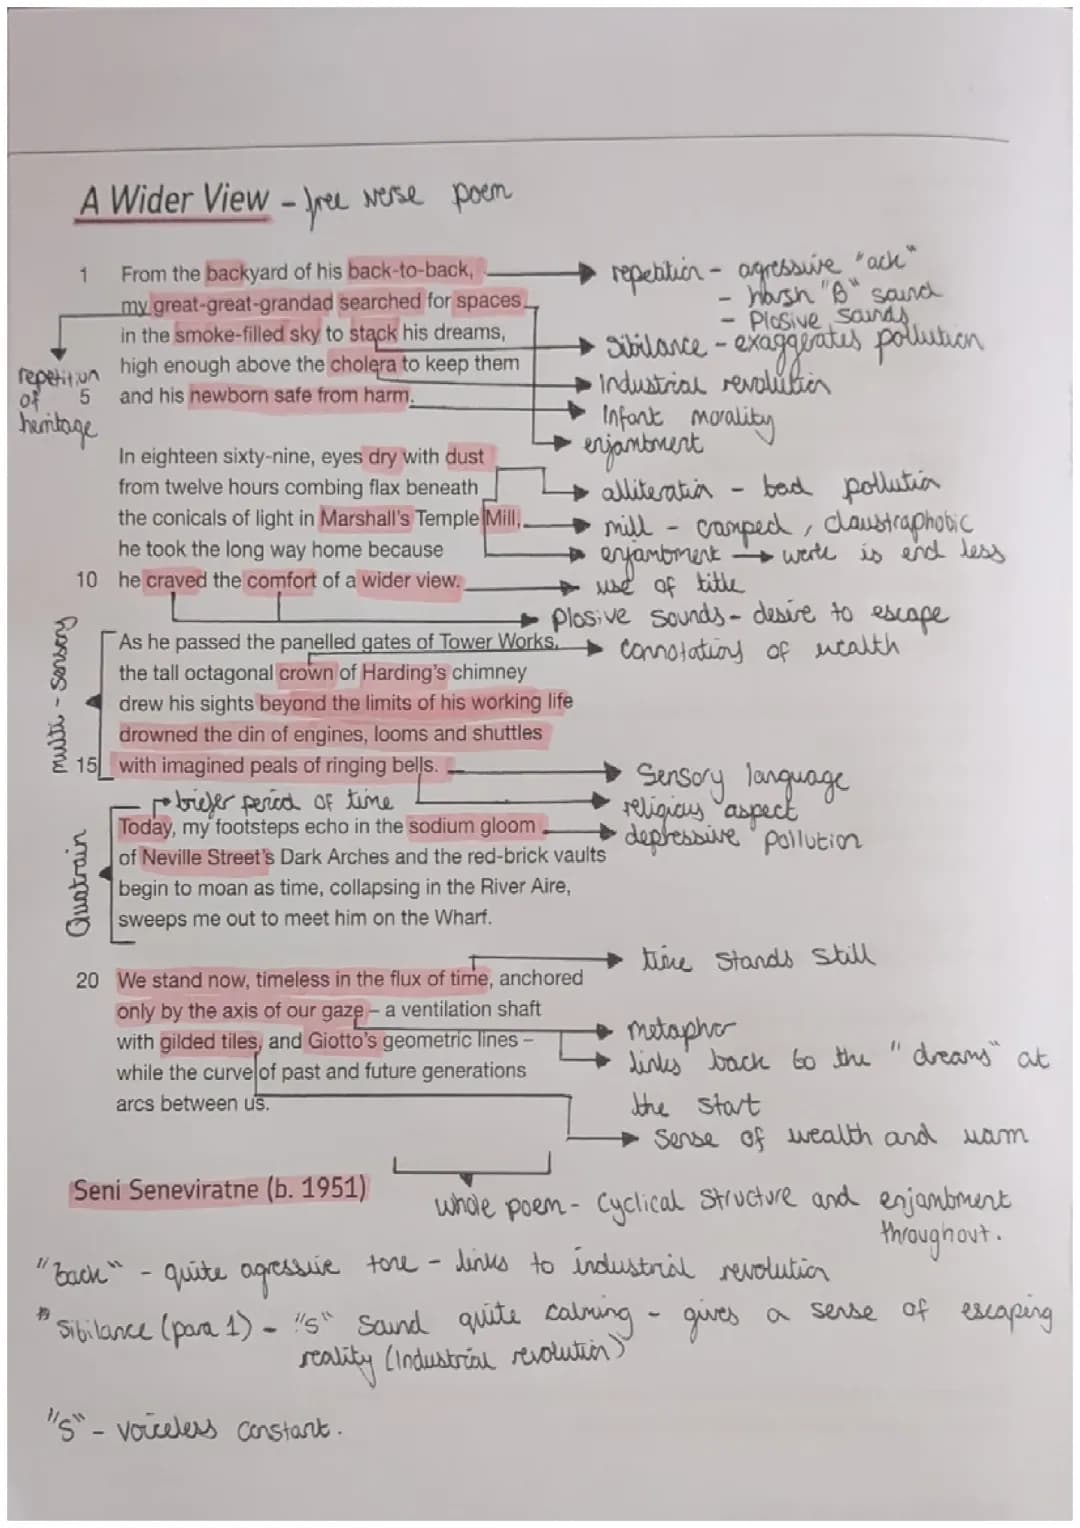 A Wider View - free verse poem
1 From the backyard of his back-to-back,
my great-great-grandad searched for spaces
in the smoke-filled sky to stack his dreams,
high enough above the cholera to keep them
5 and his newborn safe from harm.
repetition - agressive "ack"
- harsh "B" sound
- Plosive sounds
Sibilance - exaggerates pollution
Industrial revolution
Infant morality
enjambment
repetition
of
heritage
In eighteen sixty-nine, eyes dry with dust
from twelve hours combing flax beneath
the conicals of light in Marshall's Temple Mill,
he took the long way home because
10 he craved the comfort of a wider view.
alliteration - bad pollution
mill - cramped, claustraphobic
enjambment → work is end less
use of title
Plosive sounds - desire to escape
As he passed the panelled gates of Tower Works,
the tall octagonal crown of Harding's chimney
drew his sights beyond the limits of his working life
drowned the din of engines, looms and shuttles
15 with imagined peals of ringing bells.
multi-sensory
connotations of wealth
Sensory language
religious aspect
depressive pollution
briefer period of time
Today, my footsteps echo in the sodium gloom
of Neville Street's Dark Arches and the red-brick vaults
begin to moan as time, collapsing in the River Aire,
sweeps me out to meet him on the Wharf.
Quatrain
20 We stand now, timeless in the flux of time, anchored
only by the axis of our gaze – a ventilation shaft
with gilded tiles, and Giotto's geometric lines –
while the curve of past and future generations
arcs between us.
time stands still
metaphor
links back to the "dreams" at
the start
Sense of wealth and
Seni Seneviratne (b. 1951)
whole poem - Cyclical Structure and enjambment
throughout.
"back" - quite agressive tone - links to industrial revolution
Sibilance (para 1) - "s" sound quite calming - gives a sense of escaping
reality (Industrial revolution)
"s" - voiceless constant.